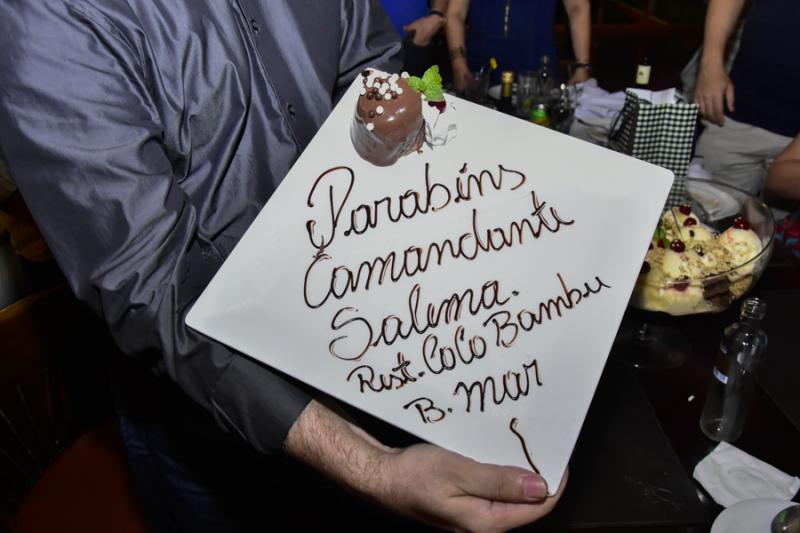 Parabéns
Comandante
Salema.
Rest. Coco Bambu
B. mar